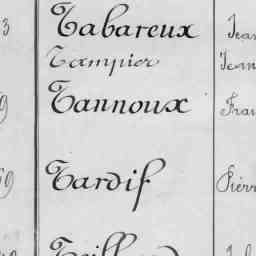 3 Tabareux Jean
Tampier Jean
9 Tannoux Fran
59 Tardif Pierr